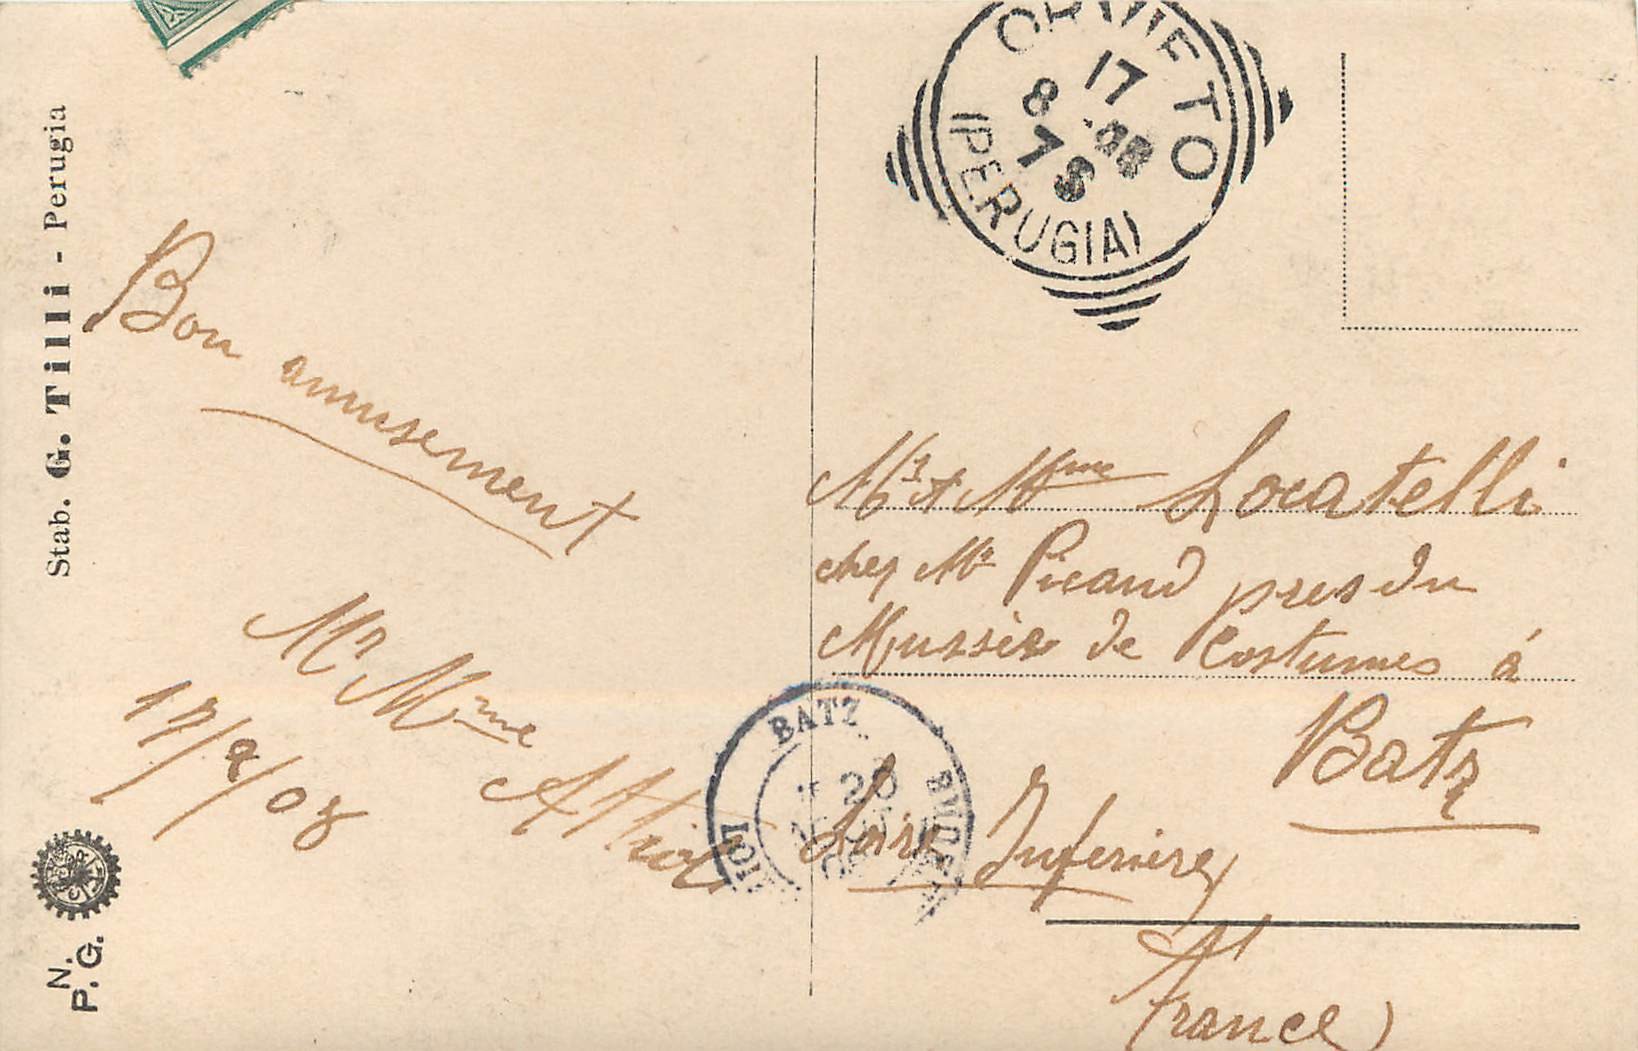 Stab. G. Tilli - Perugia
N.
P. G.
Bon amusement
Mr Mme
17/8/08
ORVIETO
(PERUGIA)
17
8 .08
7 S
Mr et Mme Locatelli
chez Mr Picaud pres du
Mussèe de Costumes à
Batz
Loire Inferiere
France)
BATZ
20